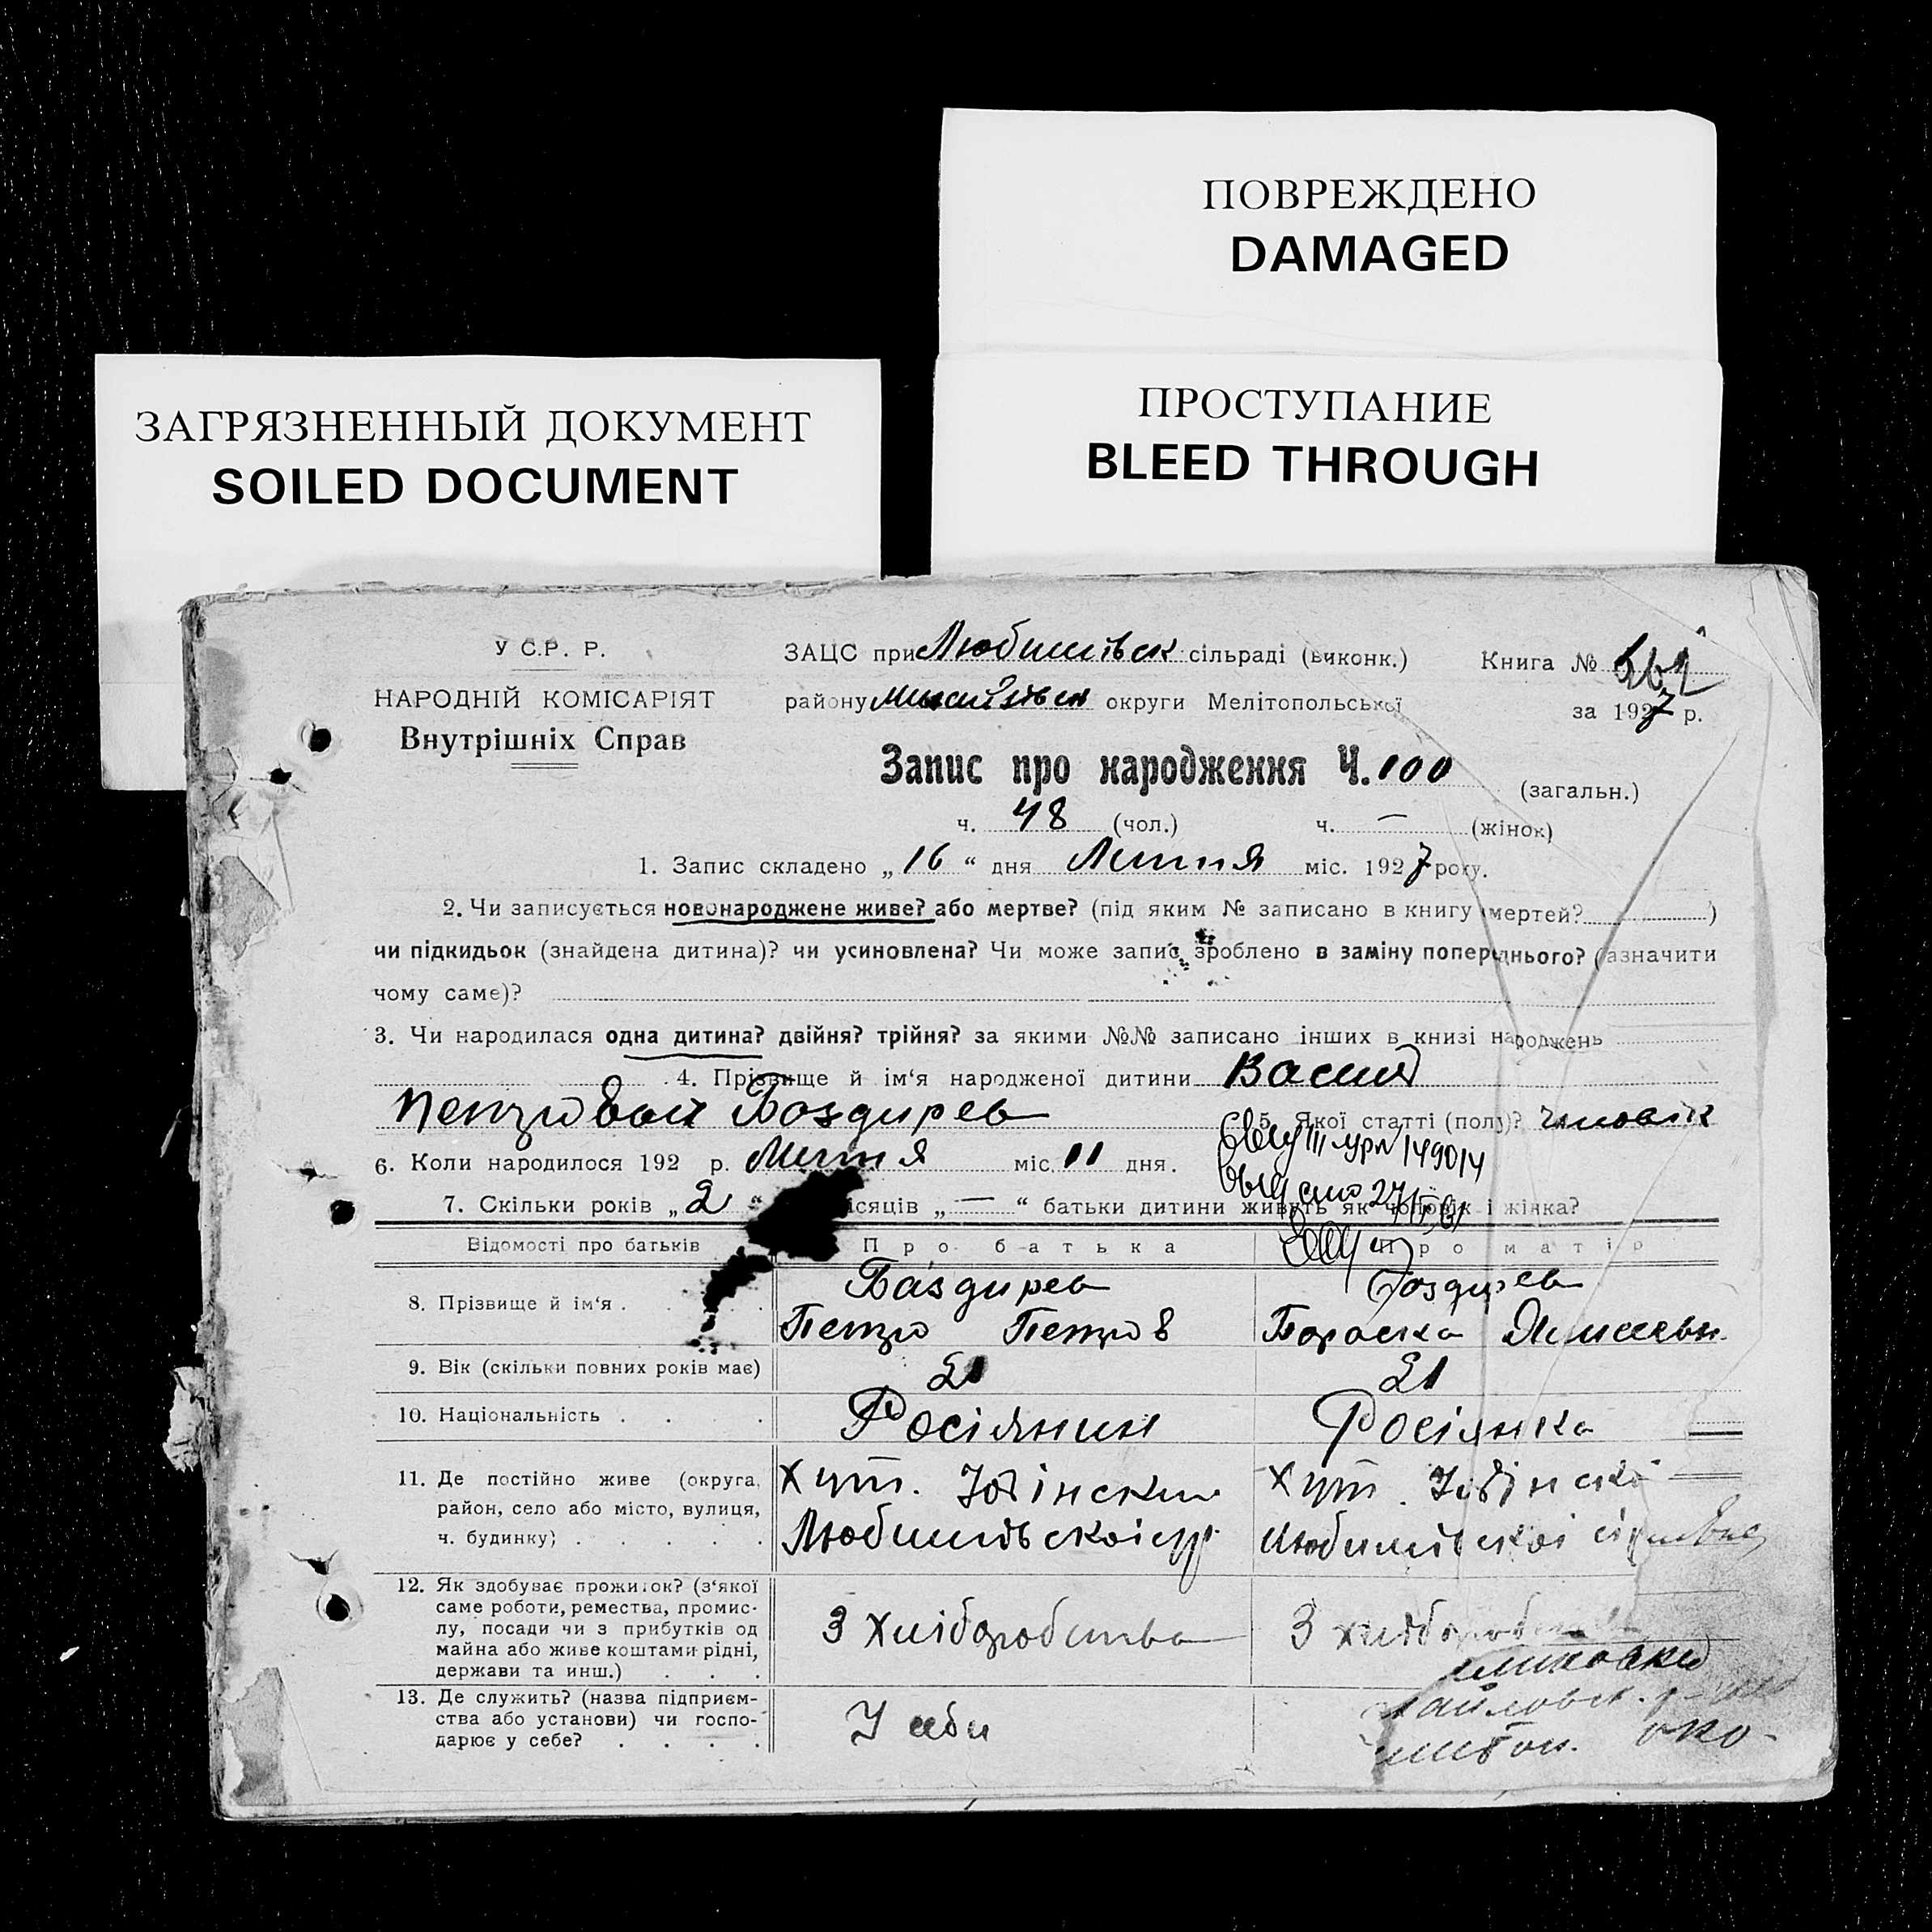 ПОВРЕЖДЕНО
DAMAGED
ЗАГРЯЗНЕННЫЙ ДОКУМЕНТ
SOILED DOCUMENT
ПРОСТУПАНИЕ
BLEED THROUGH
У С.Р. Р.
НАРОДНІЙ КОМІСАРІЯТ
Внутрішніх Справ
ЗАЦС при Любимівськ сільраді (виконк.)
району округи Мелітопольської
Книга №
за 1927 р.
Запис про народження Ч. 100 (загальн.)
ч. 48 (чол.) ч. — (жінок)
1. Запис складено „16“ дня Липня міс. 1927 року.
2. Чи записується новонароджене живе? або мертве? (під яким № записано в книгу мертей? )
чи підкидьок (знайдена дитина)? чи усиновлена? Чи може запис зроблено в заміну попереднього? (азначити
чому саме)?
3. Чи народилася одна дитина? двійня? трійня? за якими №№ записано інших в книзі народжень
4. Прізвище й ім‘я народженої дитини Васил
Петровой Баздирев
5. Якої статті (полу)? чиловік
6. Коли народилося 192 р. Липня міс. 11 дня.
7. Скільки років „2“ ісяців „—“ батьки дитини живуть як чоловік і жінка?
Відомості про батьків Про батька Про матір
8. Прізвище й ім‘я . Баздирев Баздирев
Петро Петров
9. Вік (скільки повних років має) 21 21
10. Національність . Росіянин Росіянка
11. Де постійно живе (округа, район, село або місто, вулиця, ч. будинку) .
Хут. Хут.
Любимівськоі Любимівськоі
12. Як здобуває прожиток? (з‘якої саме роботи, ремества, промислу, посади чи з прибутків од майна або живе коштами рідні, держави та инш.) .
З хліборобства З хліборобства
13. Де служить? (назва підприємства або установи) чи господарює у себе? .
У себи